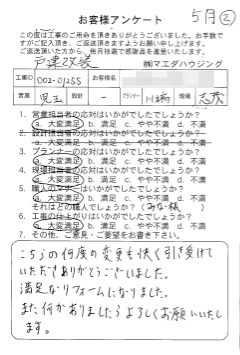 お客様アンケート
5月②
この度は工事のご用命を頂きありがとうございました。お手数で
すがご記入頂き、ご返送頂きますようお願い申し上げます。
ご返送いただいた方から、毎月抽選で感謝品を進呈いたします。
戸建改装
㈱マエダハウジング
工事ID 002-01255 お客様名
営業 児玉 設計 - プランナー 川﨑 現場 志茂
1. 営業担当者の応対はいかがでしたでしょうか?
a. 大変満足 b. 満足 c. やや不満 d. 不満
2. 設計担当者の応対はいかがでしたでしょうか?
a. 大変満足 b. 満足 c. やや不満 d. 不満
3. プランナーの応対はいかがでしたでしょうか?
a. 大変満足 b. 満足 c. やや不満 d. 不満
4. 現場担当者の応対はいかがでしたでしょうか?
a. 大変満足 b. 満足 c. やや不満 d. 不満
5. 職人のマナーはいかがでしたでしょうか?
a. 大変満足 b. 満足 c. やや不満 d. 不満
それはどの職人でしょうか?( みな様 )
6. 工事の仕上がりはいかがでしたでしょうか?
a. 大変満足 b. 満足 c. やや不満 d. 不満
7. その他、ご意見・ご要望をお書き下さい。
こちらの何度の変更も快く引き受けて
いただきありがとうございました。
満足なリフォームになりました。
また何かありましたらよろしくお願いいたし
ます。